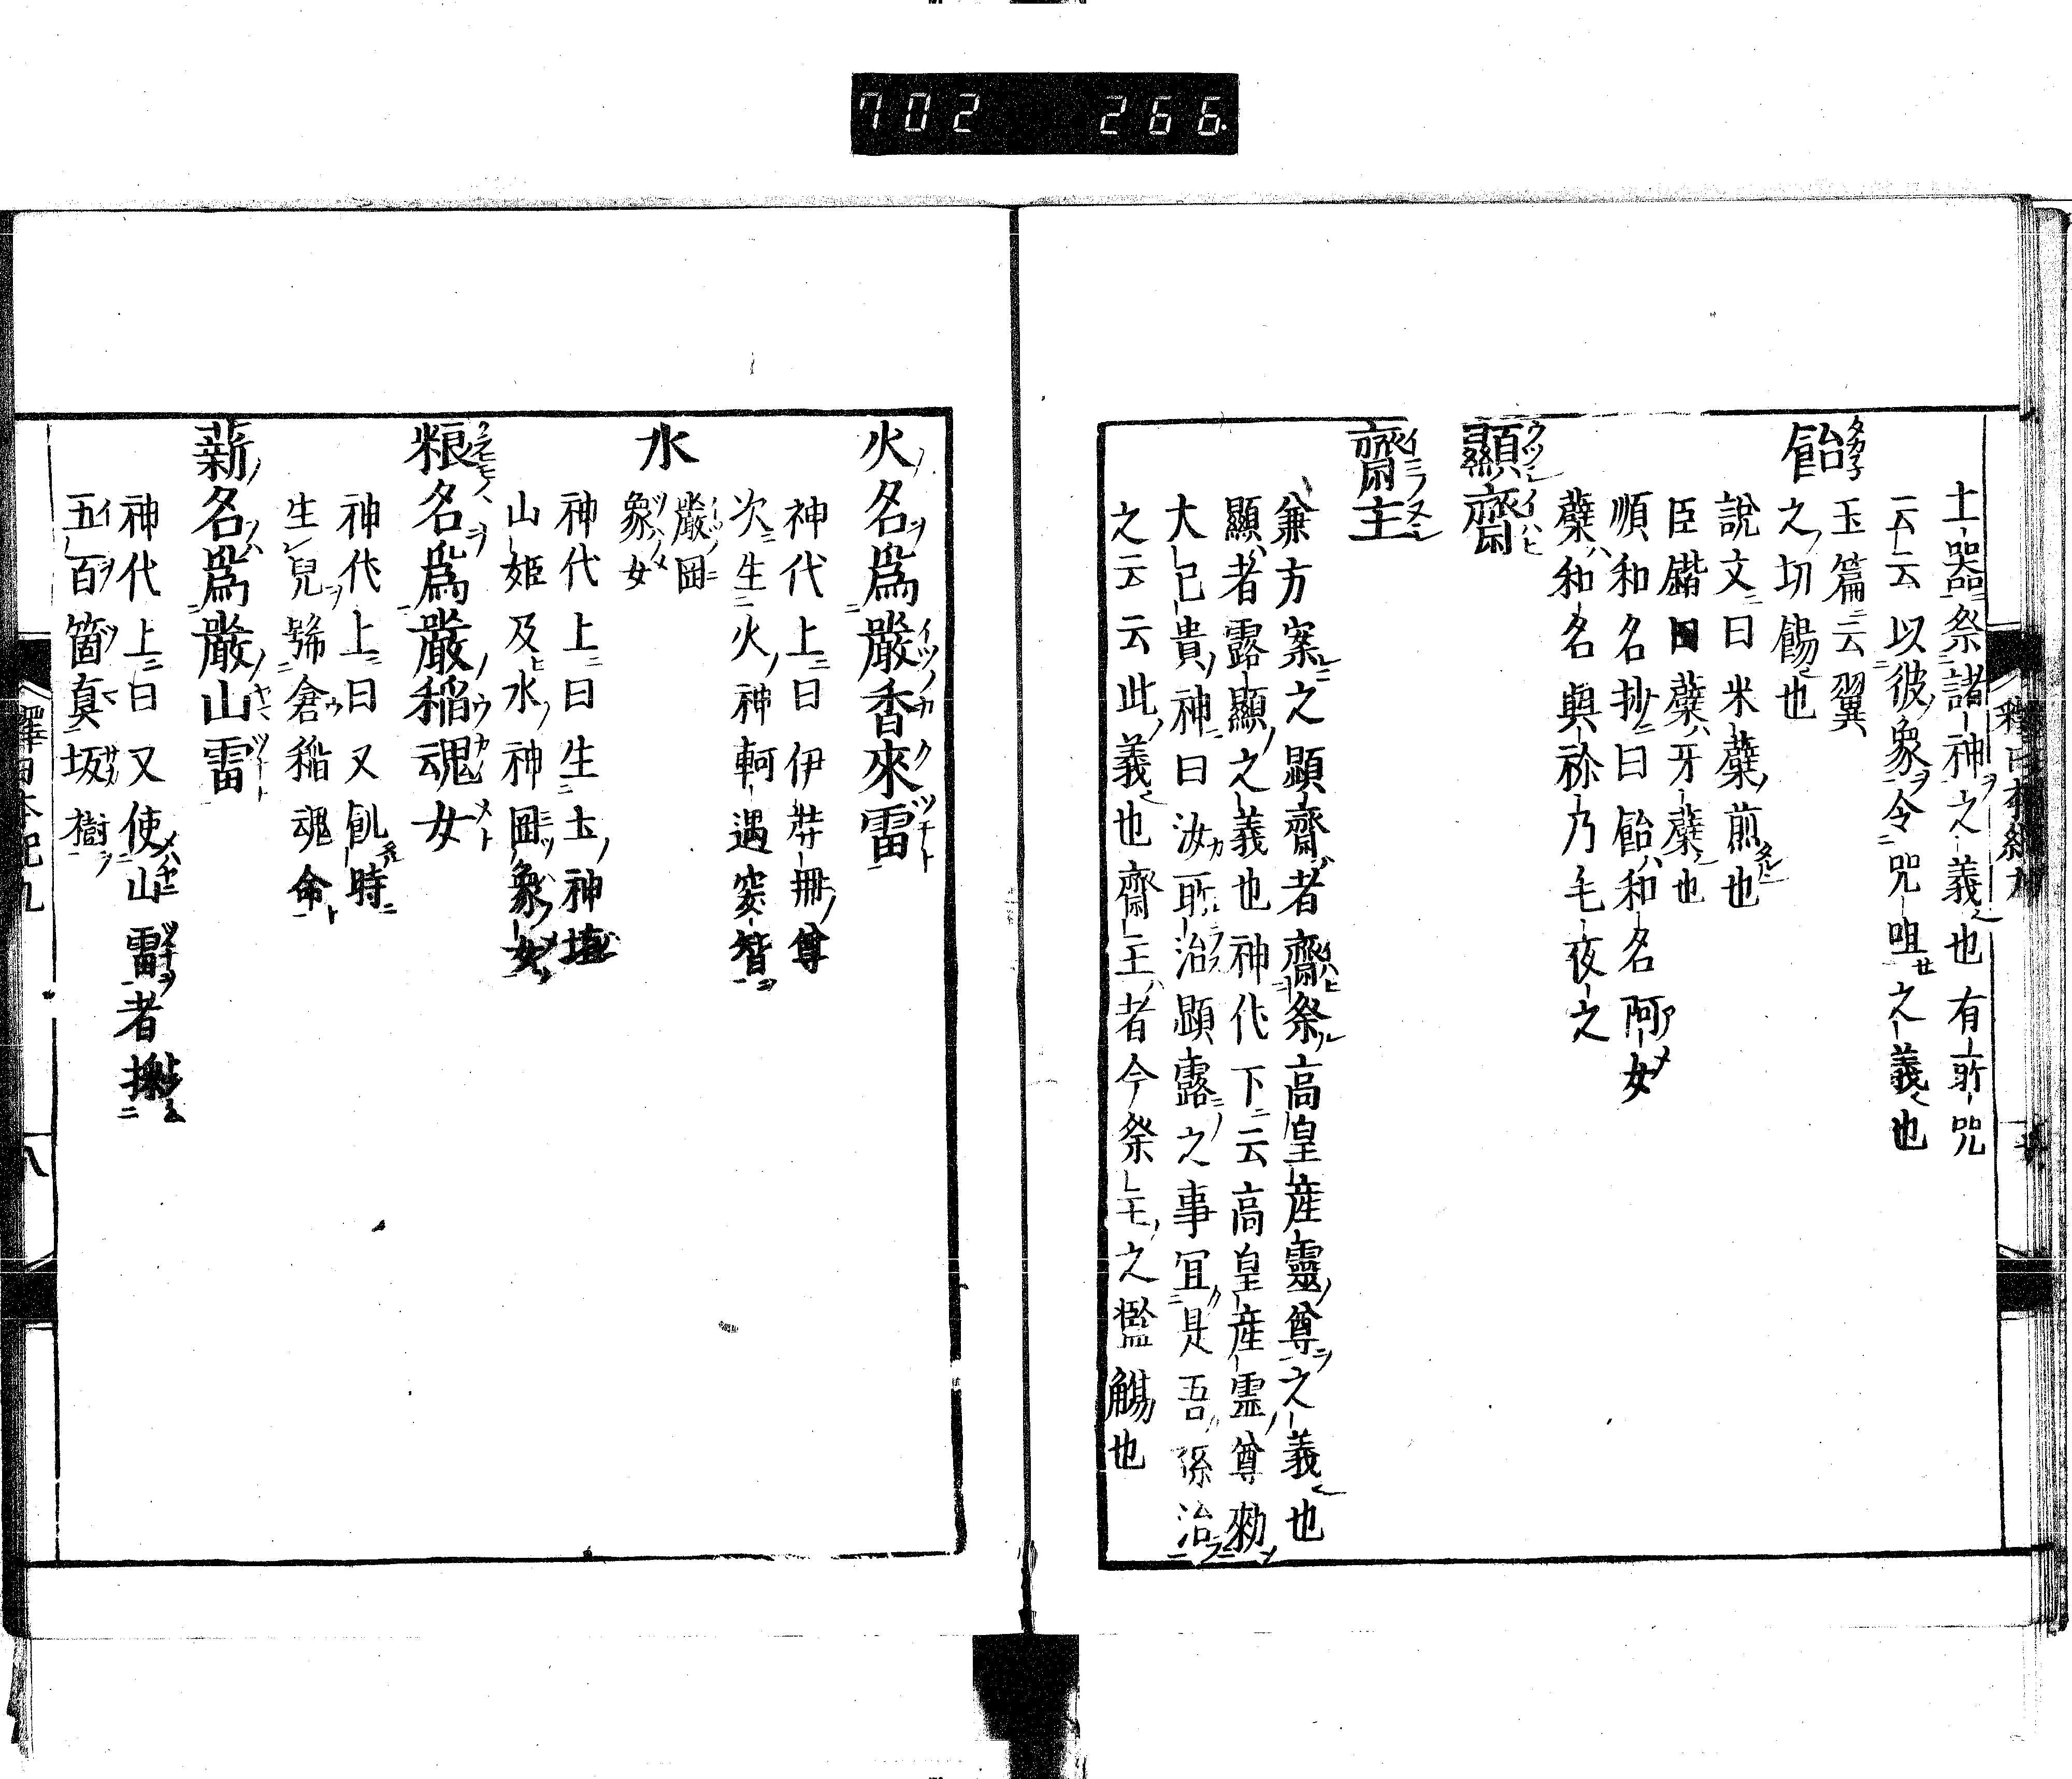 702 266
土器祭諸神之義也有所咒
云云以彼象令咒咀之義也
飴タカネ
玉篇云翼
之切餳也
說文曰米糵煎也
臣鍇曰糵牙糵也
順和名抄曰飴和名阿女
糵和名與祢乃毛夜之
顯齋
齋主
兼方案之顯齋者齋祭高皇産靈尊之義也
顯者露顯之義也神代下云高皇産霊尊勑
大己貴神曰汝所治顯露之事冝是吾孫治
之云云此義也齋主者今祭主之濫觴也
火名爲嚴香來雷
神代上曰伊弉冊尊
次生火神軻遇突智
水
嚴罔
象女
神代上曰生土神埴
山姬及水神罔象女
粮名爲嚴稲魂女
神代上曰又飢時
生兒號倉稲魂命
薪名爲嚴山雷
神代上曰又使山雷者採
五百箇真坂樹
釋日本紀九
八